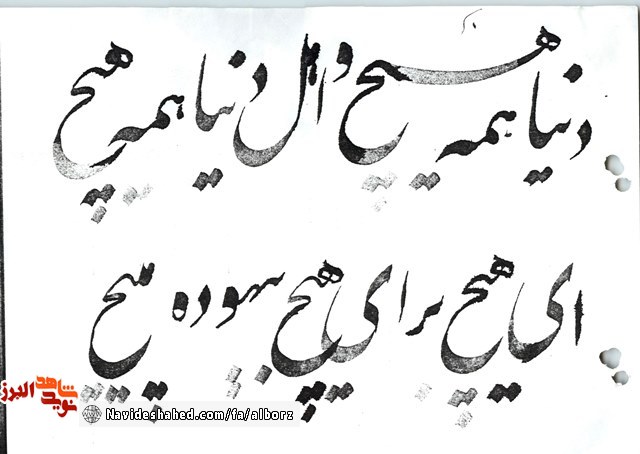 دنیا همه هیچ و اهل دنیا همه هیچ
ای هیچ برای هیچ بیهوده مپیچ
نوید شاهد البرز
Navideshahed.com/fa/alborz